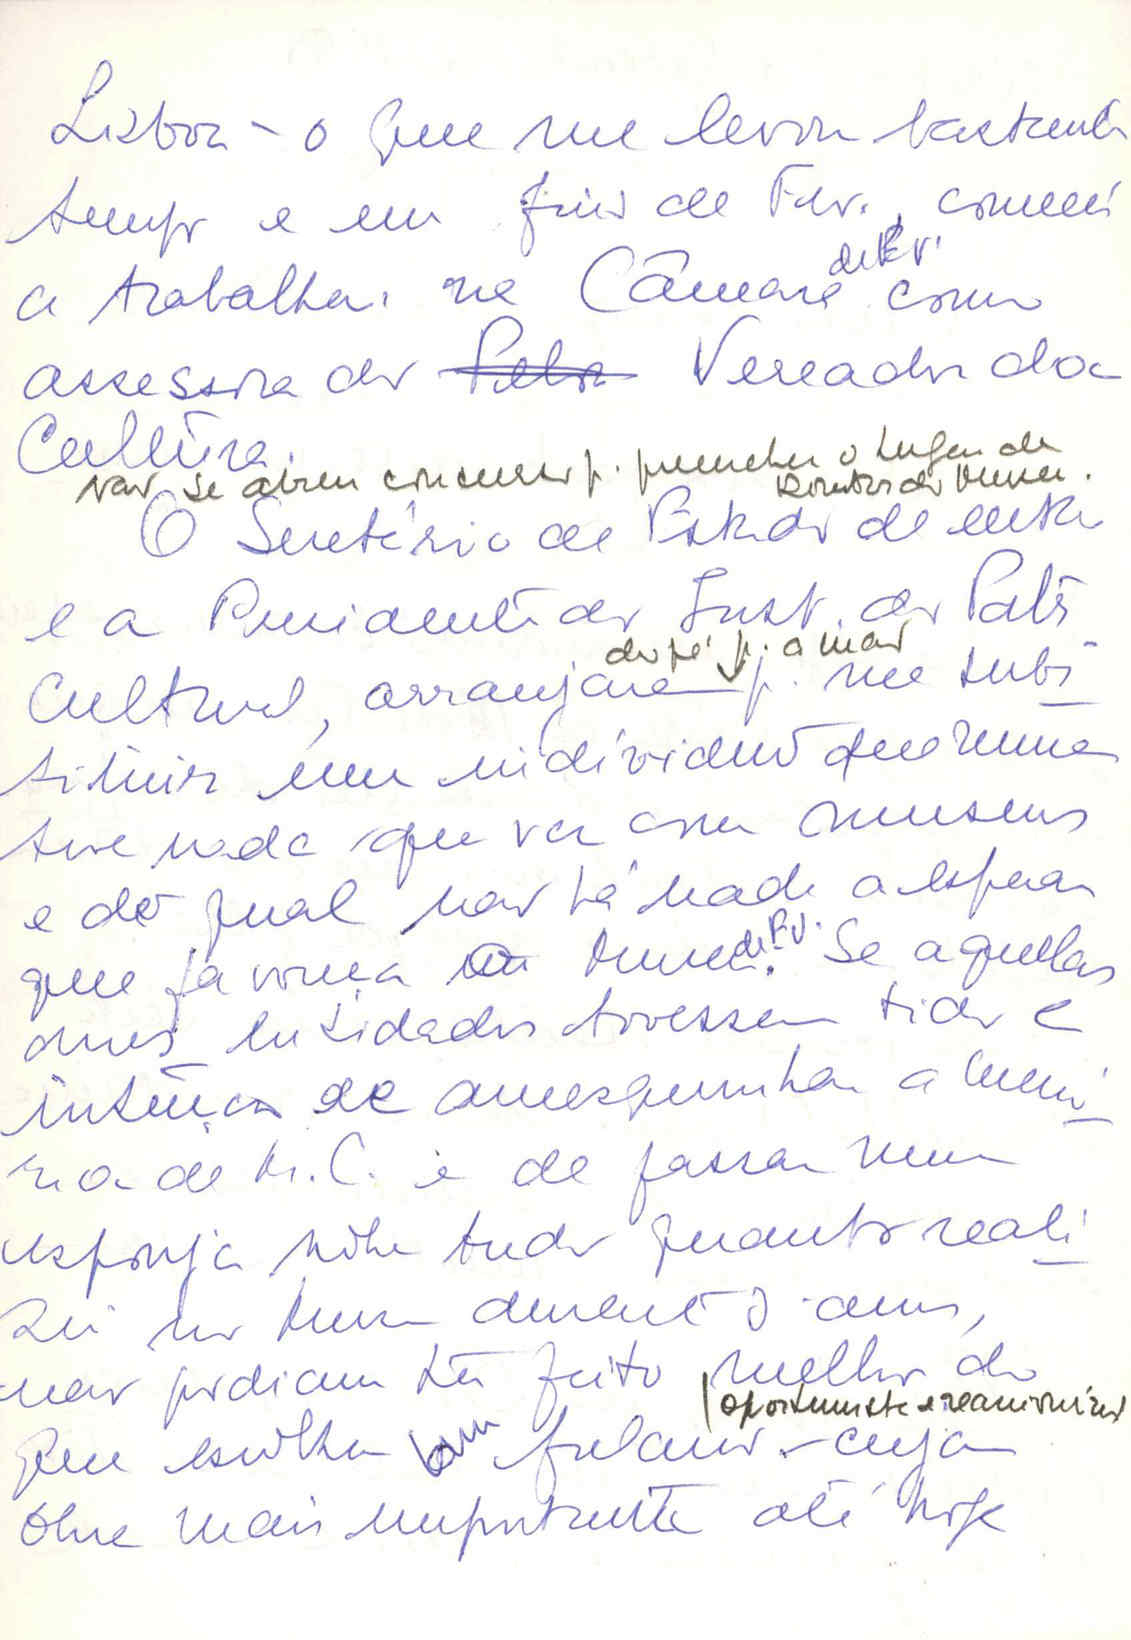 Lisboa - o que me levou bastante
tempo e em fins de Fev., comecei
a trabalhar na Câmara de P.V. como
assessora do Vereador da
Cultura.
Não se abriu concurso p. preencher o lugar de
Director do Museu.
O Secretário de Estado de então
e a Presidente do Inst. do Patr.
Cultural, arranjaram do pé p. a mão p. me subs
tituir um indivíduo que nunca
teve nada que ver com museus
e do qual não há nada a esperar
que favoreça o Museu de P.V. Se aquelas
duas entidades tivessem tido a
intenção de amesquinhar a memó
ria de M.C. e de passar uma
esponja sobre tudo quanto reali
zei no Museu durante anos,
não podiam ter feito melhor do
que escolher um fulano oportunista e reaccionário - cuja
obra mais importante até hoje